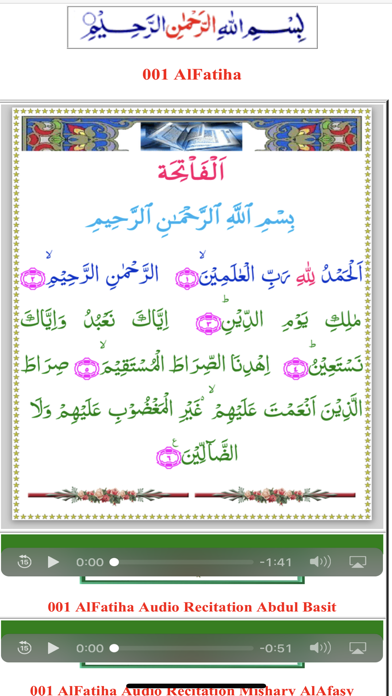 بِسْمِ اللهِ الرَّحْمٰنِ الرَّحِيْمِ
001 AlFatiha
اَلْفَاْتِحَة
بِسْمِ ٱللَّهِ ٱلرَّحْمَـٰنِ ٱلرَّحِيمِ
اَلْحَمْدُ لِلّٰهِ رَبِّ الْعٰلَمِيْنَۙ ۝١ الرَّحْمٰنِ الرَّحِيْمِۙ ۝٢
مٰلِكِ يَوْمِ الدِّيْنِؕ ۝٣ اِيَّاكَ نَعْبُدُ وَاِيَّاكَ
نَسْتَعِيْنُؕ ۝٤ اِهْدِنَا الصِّرَاطَ الْمُسْتَقِيْمَۙ ۝٥ صِرَاطَ
الَّذِيْنَ اَنْعَمْتَ عَلَيْهِمْ ۙ غَيْرِ الْمَغْضُوْبِ عَلَيْهِمْ وَلَا
الضَّآلِّيْنَ ۝٦ ع
15 0:00 -1:41
001 AlFatiha Audio Recitation Abdul Basit
15 0:00 -0:51
001 AlFatiha Audio Recitation Mishary AlAfasy